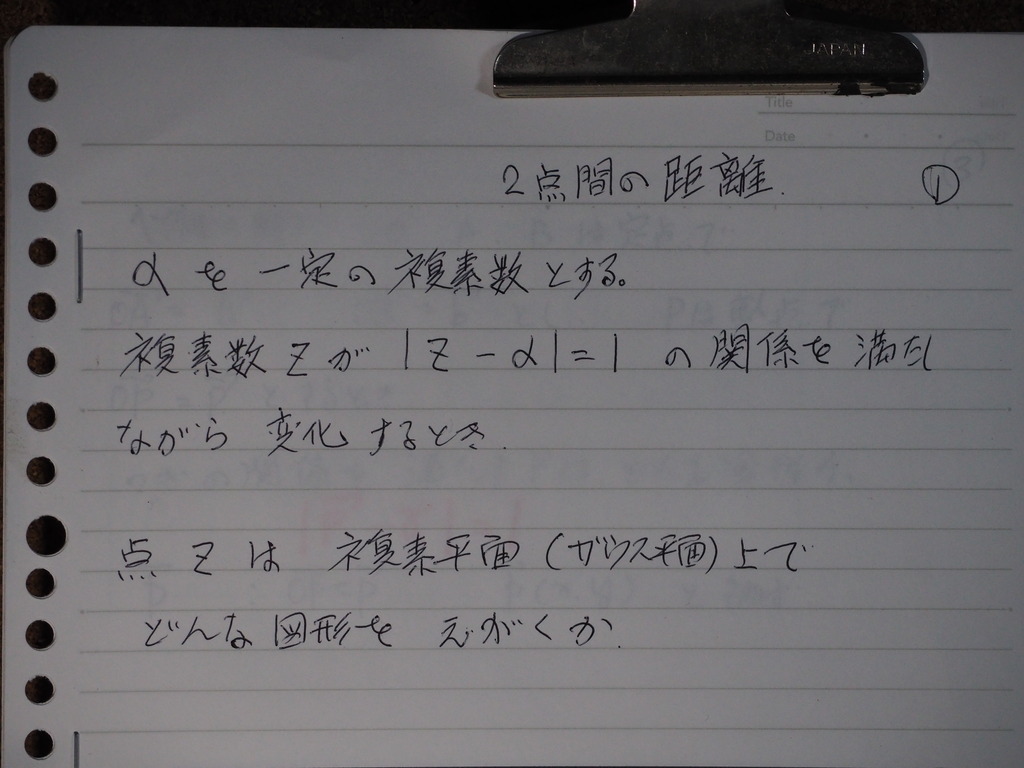 JAPAN
Title
Date
2点間の距離. ①
αを一定の複素数とする。
複素数zが |z-α|=1 の関係を満たし
ながら 変化するとき.
点zは 複素平面(ガウス平面)上で
どんな図形を えがくか.